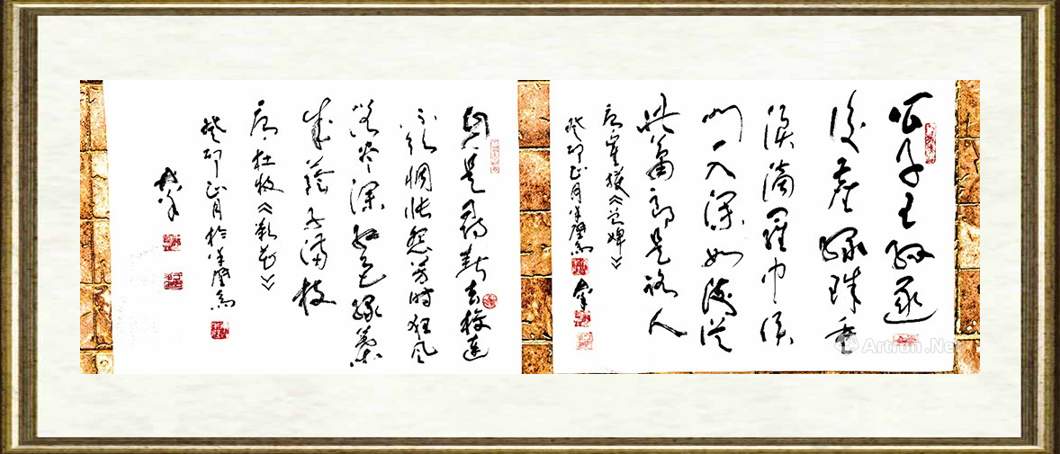 公子王孫逐
後塵緑珠垂
淚滴羅巾侯
門一入深如海從
此蕭郎是路人
《贈婢》
癸卯正月
自是尋春去校遲
不須惆悵怨芳時狂風
落盡深紅色緑葉
成蔭子滿枝
唐·杜牧《歎花》
癸卯正月於
Artron.Net